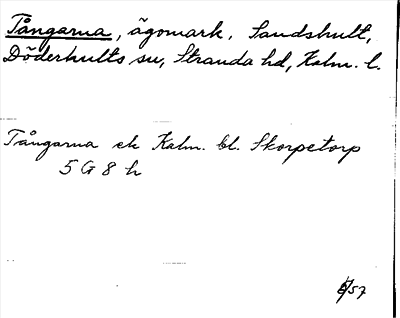 Tångarna, ägomark, Sandshult,
Döderhults sn, Stranda hd, Kalm. l.
Tångarna ek Kalm. bl. Skorpetorp
5 G 8 h